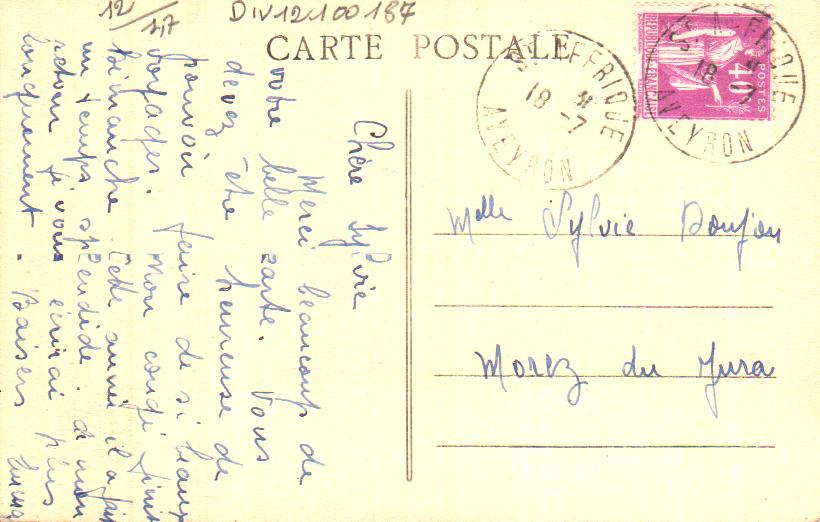 12/17
DIV12100187
CARTE POSTALE
Chère Sylvie
Merci beaucoup de
votre belle carte. Vous
devez être heureuse de
pouvoir faire de si beaux
voyages. Mon congé finit
Dimanche. Cette année il a fait
un temps splendide. A mon
retour je vous écrirai plus
longuement. Baisers
ST AFFRIQUE
18 -7
AVEYRON
RÉPUBLIQUE FRANÇAISE
POSTES
40
ST AFFRIQUE
18 -7
AVEYRON
Melle Sylvie
Morez du Jura